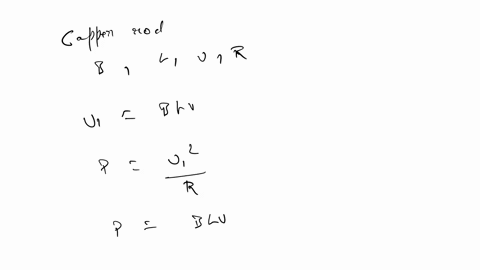 Copper rod
B, L, v, R
v₁ = BLv
P = v₁² / R
P = BLv